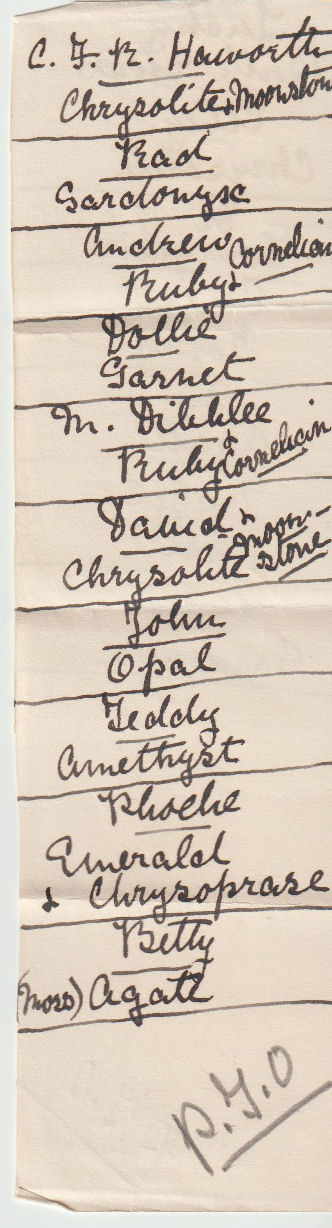 C. F. R. Haworth
Chrysolite & Moonston
Rad
Sardonyx
Andrew
Ruby & Cornelian
Dollie
Garnet
M. Dibblee
Ruby & Cornelian
David
Chrysolite & moon-
stone
John
Opal
Teddy
Amethyst
Phoebe
Emerald
& Chrysoprase
Betty
(Moss) Agate
P.T.O